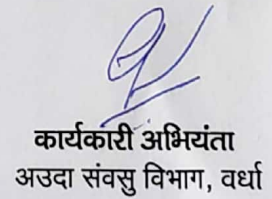 कार्यकारी अभियंता
अउदा संवसु विभाग, वर्धा